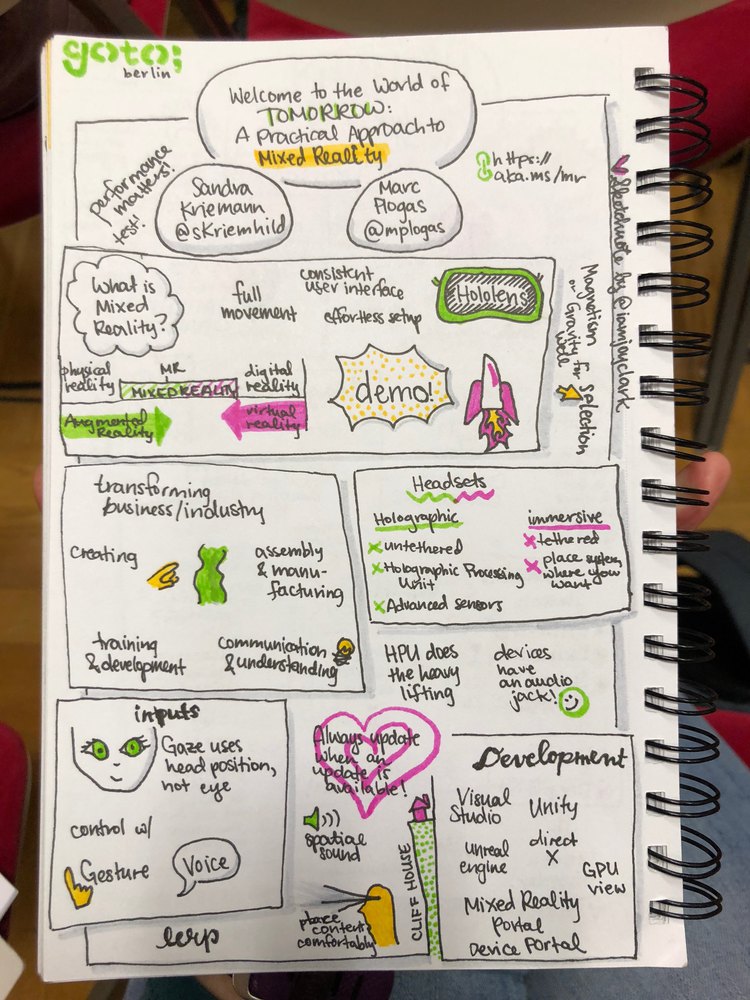 goto;
berlin
Welcome to the World of
TOMORROW:
A Practical Approach to
Mixed Reality
performance
matters!
test!
Sandra
Kriemann
@sKriemhild
Marc
Plogas
@mplogas
https://
aka.ms/mr
Sketchnote by @iamjayclark
What is
Mixed
Reality?
full
movement
consistent
user interface
effortless setup
Hololens
Magnetism
or Gravity for selection
well
physical
reality
MR
MIXED REALITY
digital
reality
Augmented
Reality
virtual
reality
demo!
transforming
business/industry
creating
assembly
& manu-
facturing
training
& development
communication
& understanding
Headsets
Holographic
x untethered
x Holographic Processing
Unit
x Advanced sensors
immersive
x tethered
x place system
where you
want
HPU does
the heavy
lifting
devices
have
an audio
jack!
inputs
Gaze uses
head position,
not eye
control w/
Gesture
Voice
Always update
when an
update is
available!
spatial
sound
CLIFF HOUSE
place
content
comfortably
lerp
Development
Visual
Studio
Unity
unreal
engine
direct
X
GPU
view
Mixed Reality
Portal
Device Portal